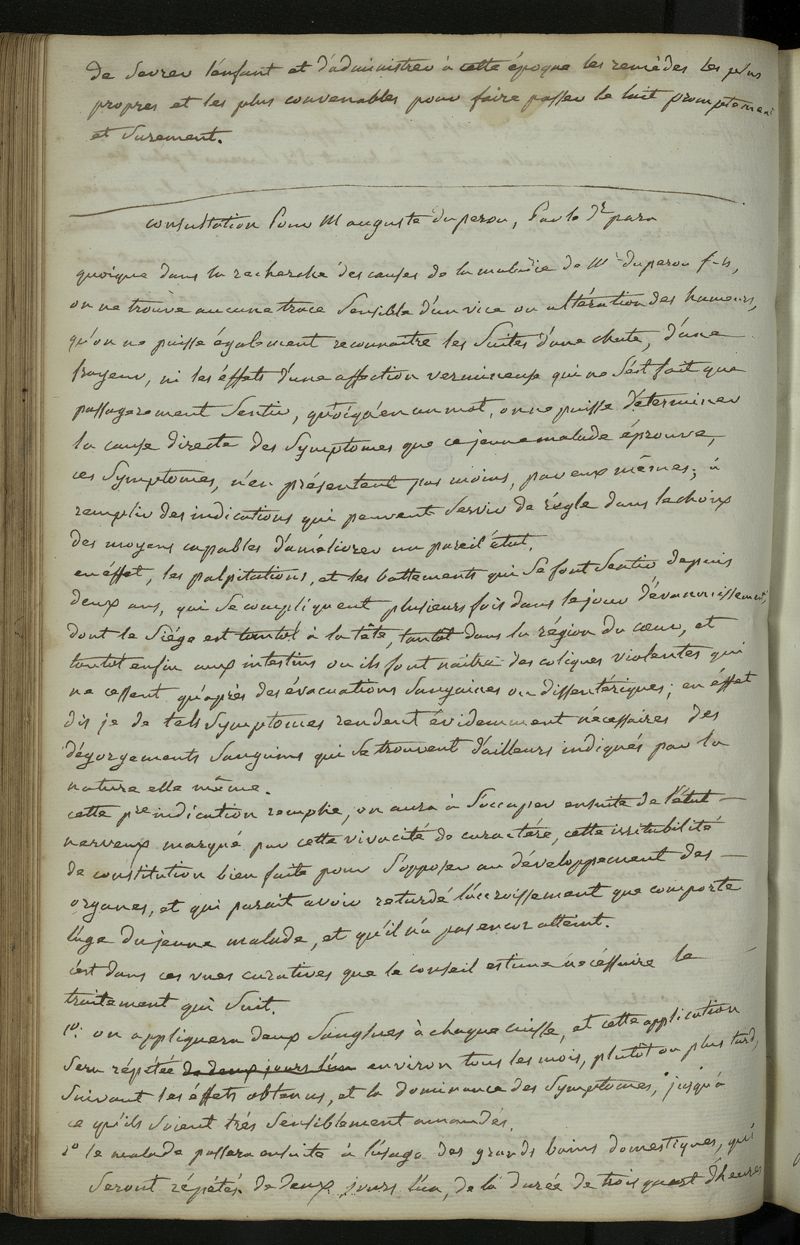 de sevrer l'enfant et d'administrer à cette époque les remèdes les plus
propres et les plus convenables pour faire passer le lait promptement
et surement.
consultation Pour M auguste duperou, Par le Dr para
quoique dans la recherche des causes de la maladie de Mr duperou fils,
on ne trouve aucune trace sensible d'un vice ou altération des humeurs,
qu'on ne puisse également reconnaitre les suites d'une chute, d'une
frayeur, ni les éffets d'une affection vermineuse qui ne s'est fait que
passagerement sentir, quoiqu'en un mot, on ne puisse déterminer
la cause directe des symptomes que ce jeune malade éprouve,
ces symptomes, n'en présentent pas moins, par eux mêmes, à
remplir des indications qui peuvent servir de règle dans le choix
des moyens capables d'améliorer un pareil état.
en éffet, les palpitations, et les battements qui se font sentir depuis
deux ans, qui se compliquent plusieurs fois dans le jour d'évanouissement,
dont le siége est tantot à la tête, tantot dans la région du cœur, et
tantot enfin aux intestins ou ils font naitre des coliques violentes qui
ne cessent qu'après des évacuations sanguines ou dissentériques; en éffet
dis je de tels symptomes rendent évidemment nécessaires des
dégorgements sanguins qui se trouvent d'ailleurs indiqués par la
nature elle même.
cette pre indication remplie, on aura à s'occuper ensuite de l'état
nerveux marqué par cette vivacité de caractére, cette irritabilité
de constitution bien faite pour s'opposer au développement des
organes, et qui parait avoir retardé l'accroissement que comporte
l'âge du jeune malade, et qu'il n'a pas encor atteint.
c'est dans ces vues curatives que le conseil estime nécéssaire le
traitement qui suit.
1o. on appliquera deux sangsues à chaque cuisse, et cette application
sera répétée de deux jours l'un environ tous les mois, plutôt ou plus tard,
suivant les éffets obtenus, et la dominance des symptomes, jusqu'à
ce qu'ils soient trés sensiblement amandés.
2o le malade passera ensuite à l'usage des grands bains domestiques, qui
seront répétés de deux jours l'un, de la durée de trois quart d'heures